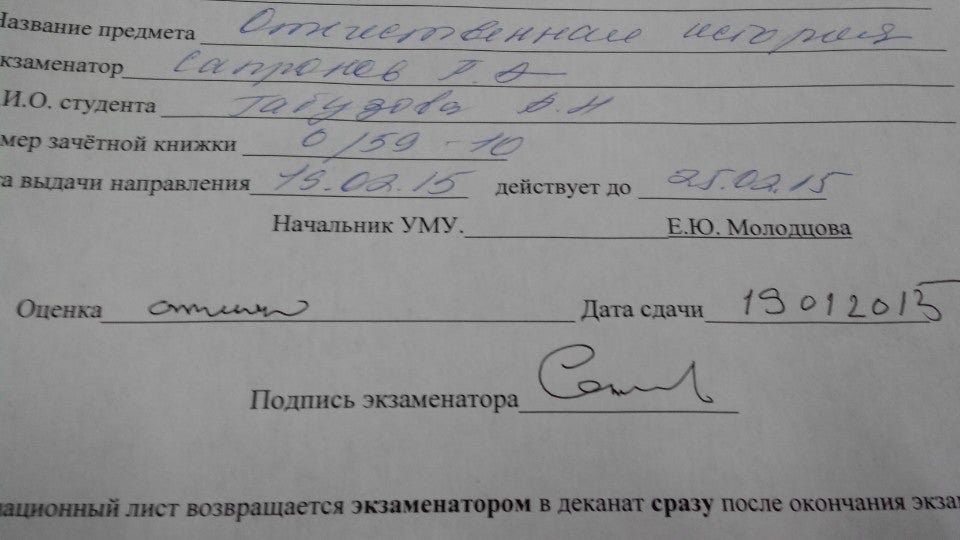 Название предмета Отечественная история
кзаменатор Сапронов П. А
.И.О. студента Табузова В.Н
мер зачётной книжки 0/59-10
а выдачи направления 19.02.15 действует до 25.02.15
Начальник УМУ. Е.Ю. Молодцова
Оценка отлично Дата сдачи 19012015
Подпись экзаменатора
ационный лист возвращается экзаменатором в деканат сразу после окончания экза